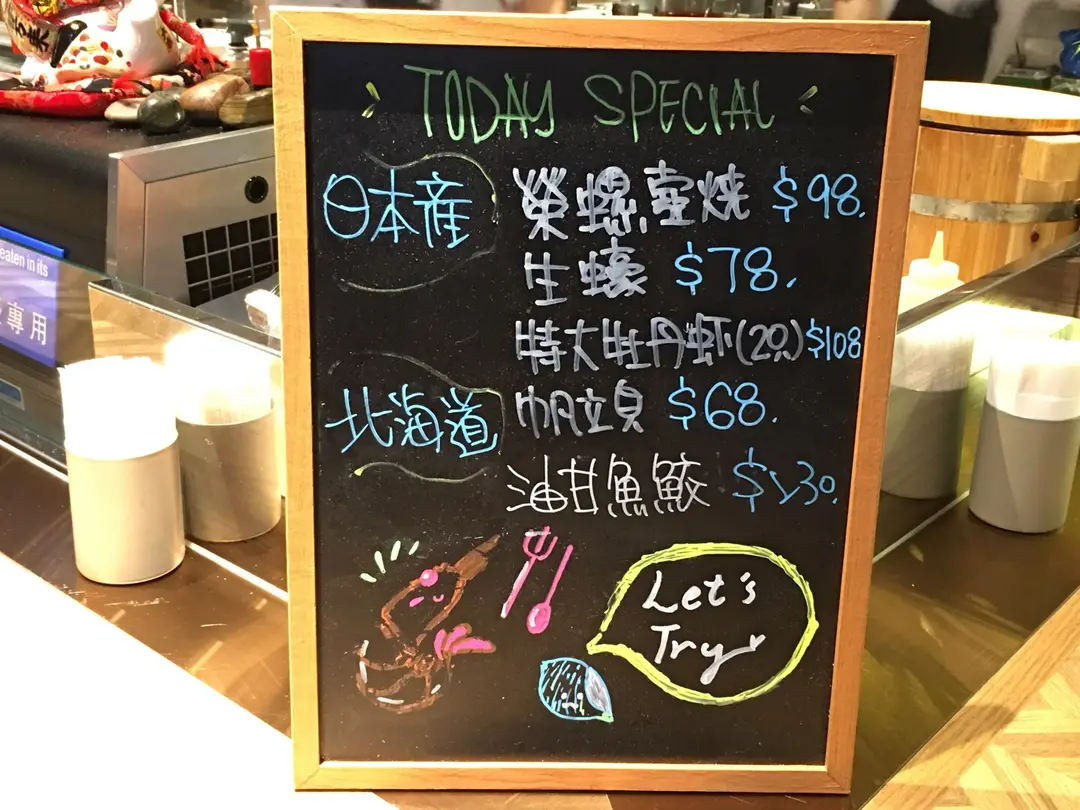 TODAY SPECIAL
日本産 榮螺壺燒 $98.
生蠔 $78.
特大牡丹蝦(2只)$108
北海道 帆立貝 $68.
油甘魚鮫 $130.
Let's
Try
eaten in its
專用